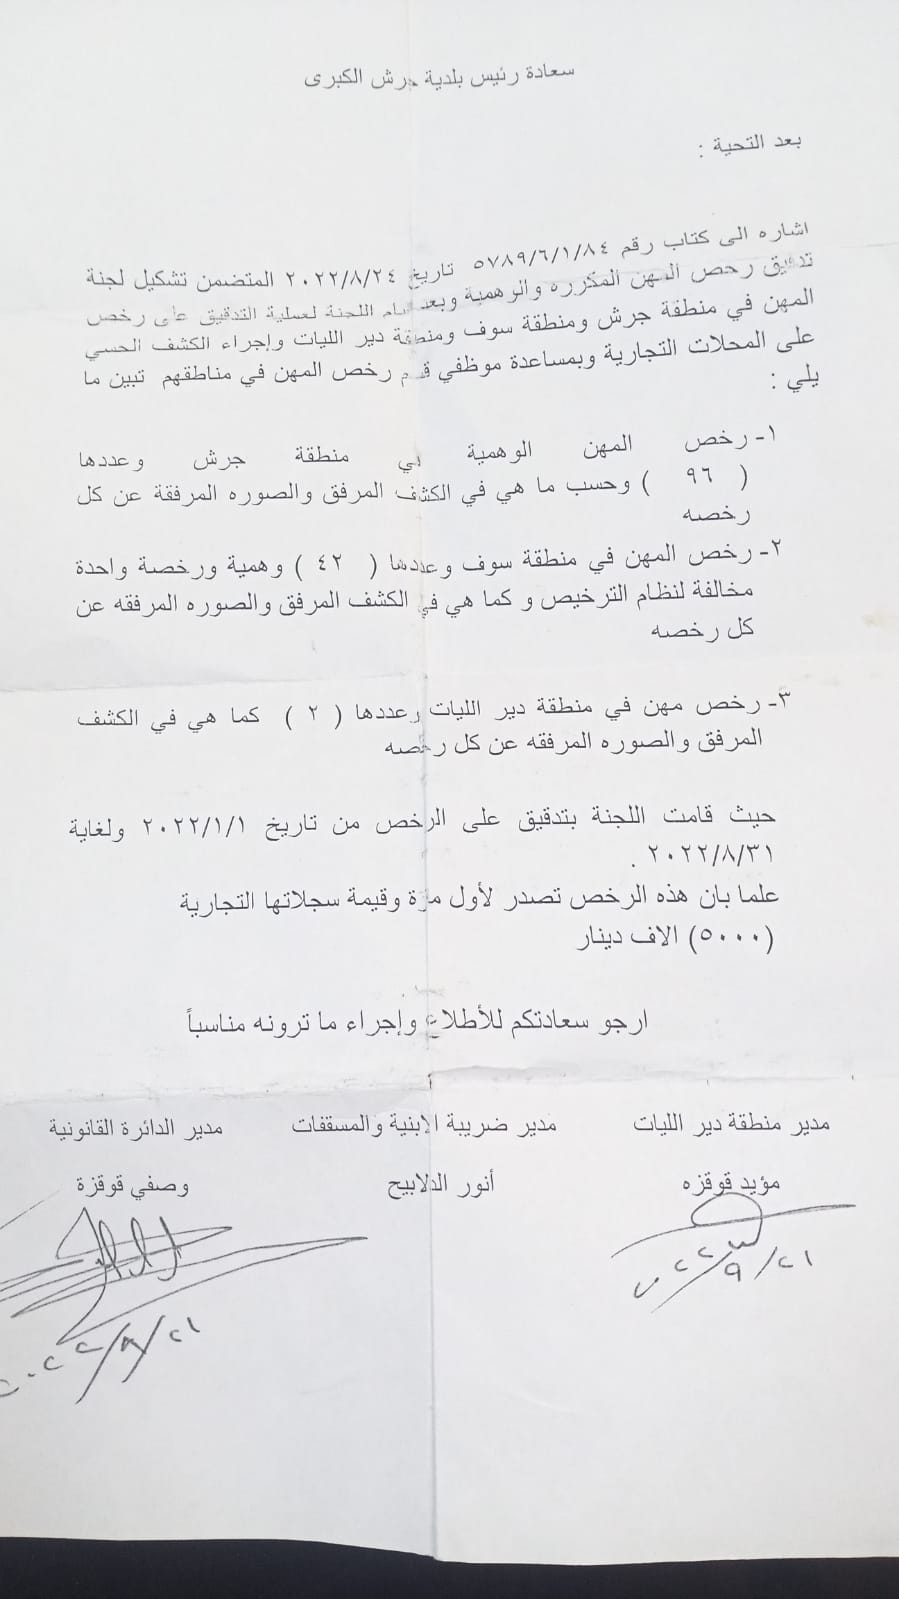 سعادة رئيس بلدية جرش الكبرى
بعد التحية :
اشاره الى كتاب رقم ٥٧٨٩/٦/١/٨٤ تاريخ ٢٠٢٢/٨/٢٤ المتضمن تشكيل لجنة
تدقيق رخص المهن المكرره والوهمية وبعد اللجنة لعملية التدقيق على رخص
المهن في منطقة جرش ومنطقة سوف ومنطقة دير الليات وإجراء الكشف الحسي
على المحلات التجارية وبمساعدة موظفي قسم رخص المهن في مناطقهم تبين ما
يلي :
١- رخص المهن الوهمية في منطقة جرش وعددها
( ٩٦ ) وحسب ما هي في الكشف المرفق والصوره المرفقة عن كل
رخصه
٢- رخص المهن في منطقة سوف وعددها ( ٤٢ ) وهمية ورخصة واحدة
مخالفة لنظام الترخيص و كما هي في الكشف المرفق والصوره المرفقه عن
كل رخصه
٣- رخص مهن في منطقة دير الليات وعددها ( ٢ ) كما هي في الكشف
المرفق والصوره المرفقه عن كل رخصه
حيث قامت اللجنة بتدقيق على الرخص من تاريخ ٢٠٢٢/١/١ ولغاية
٢٠٢٢/٨/٣١ .
علما بان هذه الرخص تصدر لأول مرة وقيمة سجلاتها التجارية
(٥٠٠٠) الاف دينار
ارجو سعادتكم للأطلاع وإجراء ما ترونه مناسباً
مدير منطقة دير الليات مدير ضريبة الابنية والمسقفات مدير الدائرة القانونية
مؤيد قوقزه أنور الدلابيح وصفي قوقزة